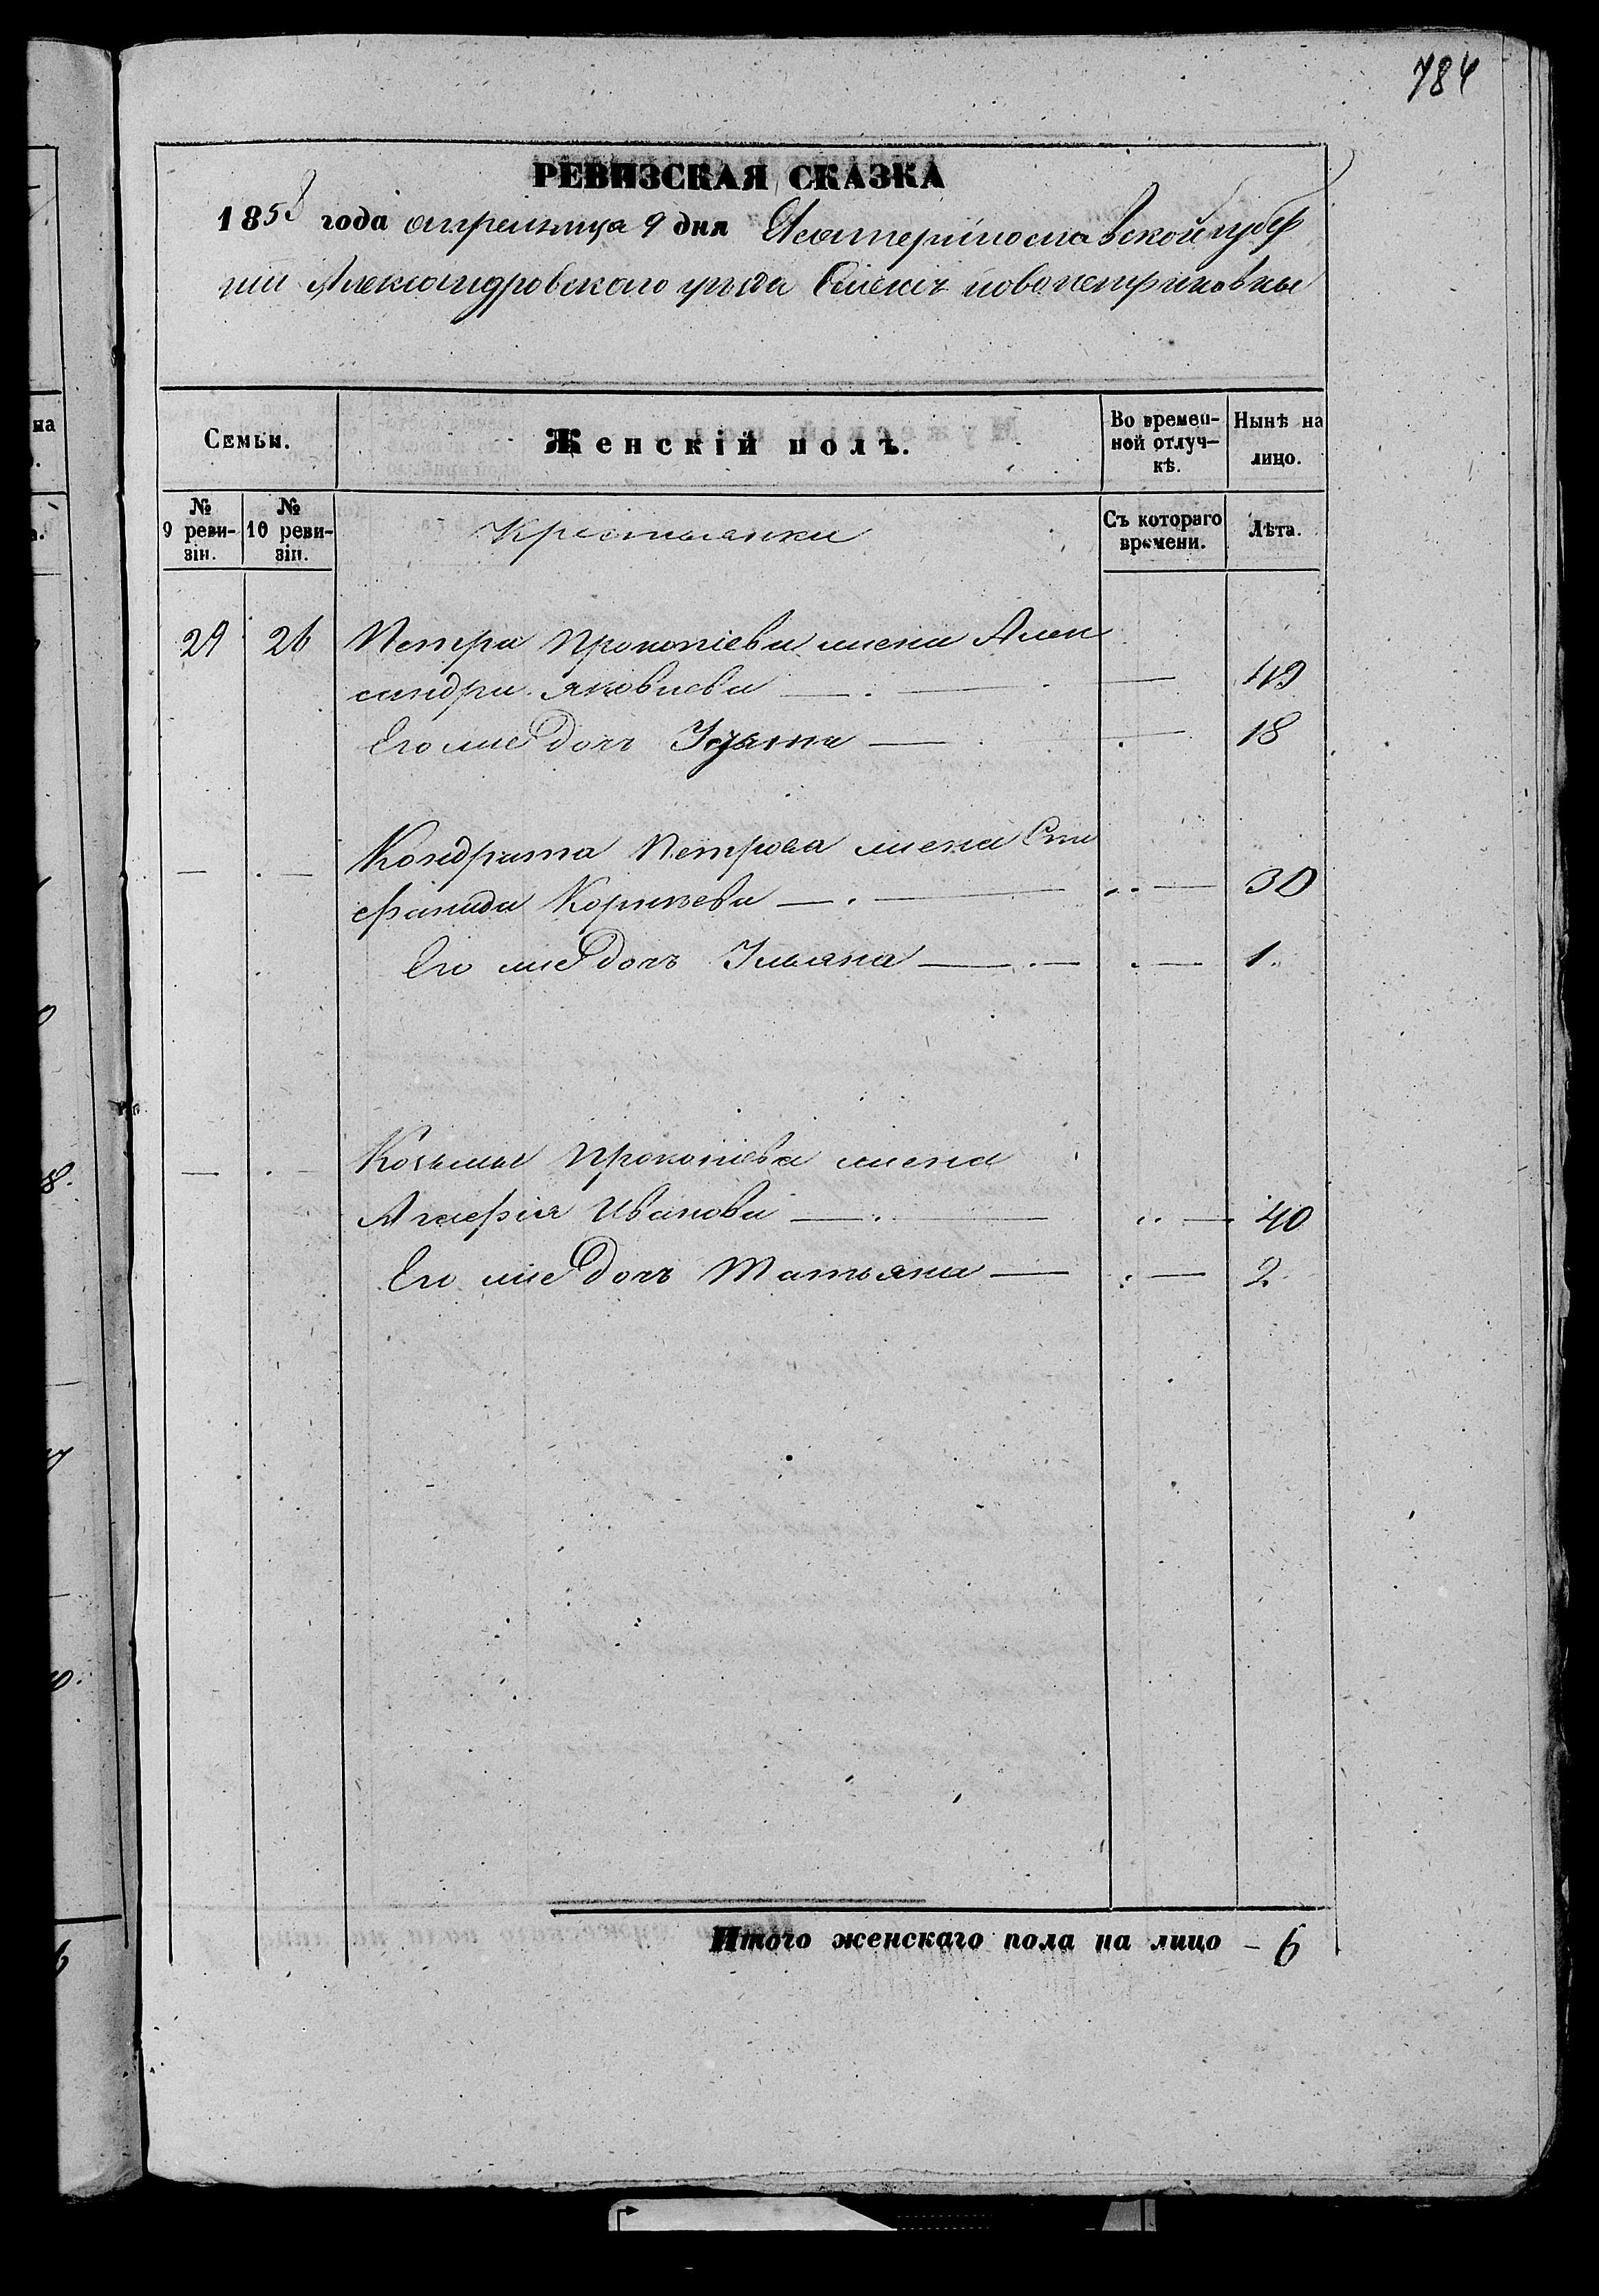 784
РЕВИЗСКАЯ СКАЗКА
1858 года апрель мца 9 дня Екатеринославской губер
нии Александровского уезда Селенiя новопетриковки
Семьи.
Женскій полъ.
Во времен-
ной отлуч-
кѣ.
Нынѣ на
лицо.
№
9 реви-
зіи.
№
10 реви-
зіи.
Крестьянки
Съ котораго
времени.
Лѣта.
29 26 Петра Прокопіева жена Алек
сандра Яковлева — 49
Его же дочь — 18
Кондрата Петрова жена Сте
фанида Корнѣева — 30
Его же дочь Ульяна — 1.
Козьмы Прокопіева жена
Агафія Иванова — 40
Его же дочь Татьяна — 2.
Итого женскаго пола на лицо – 6